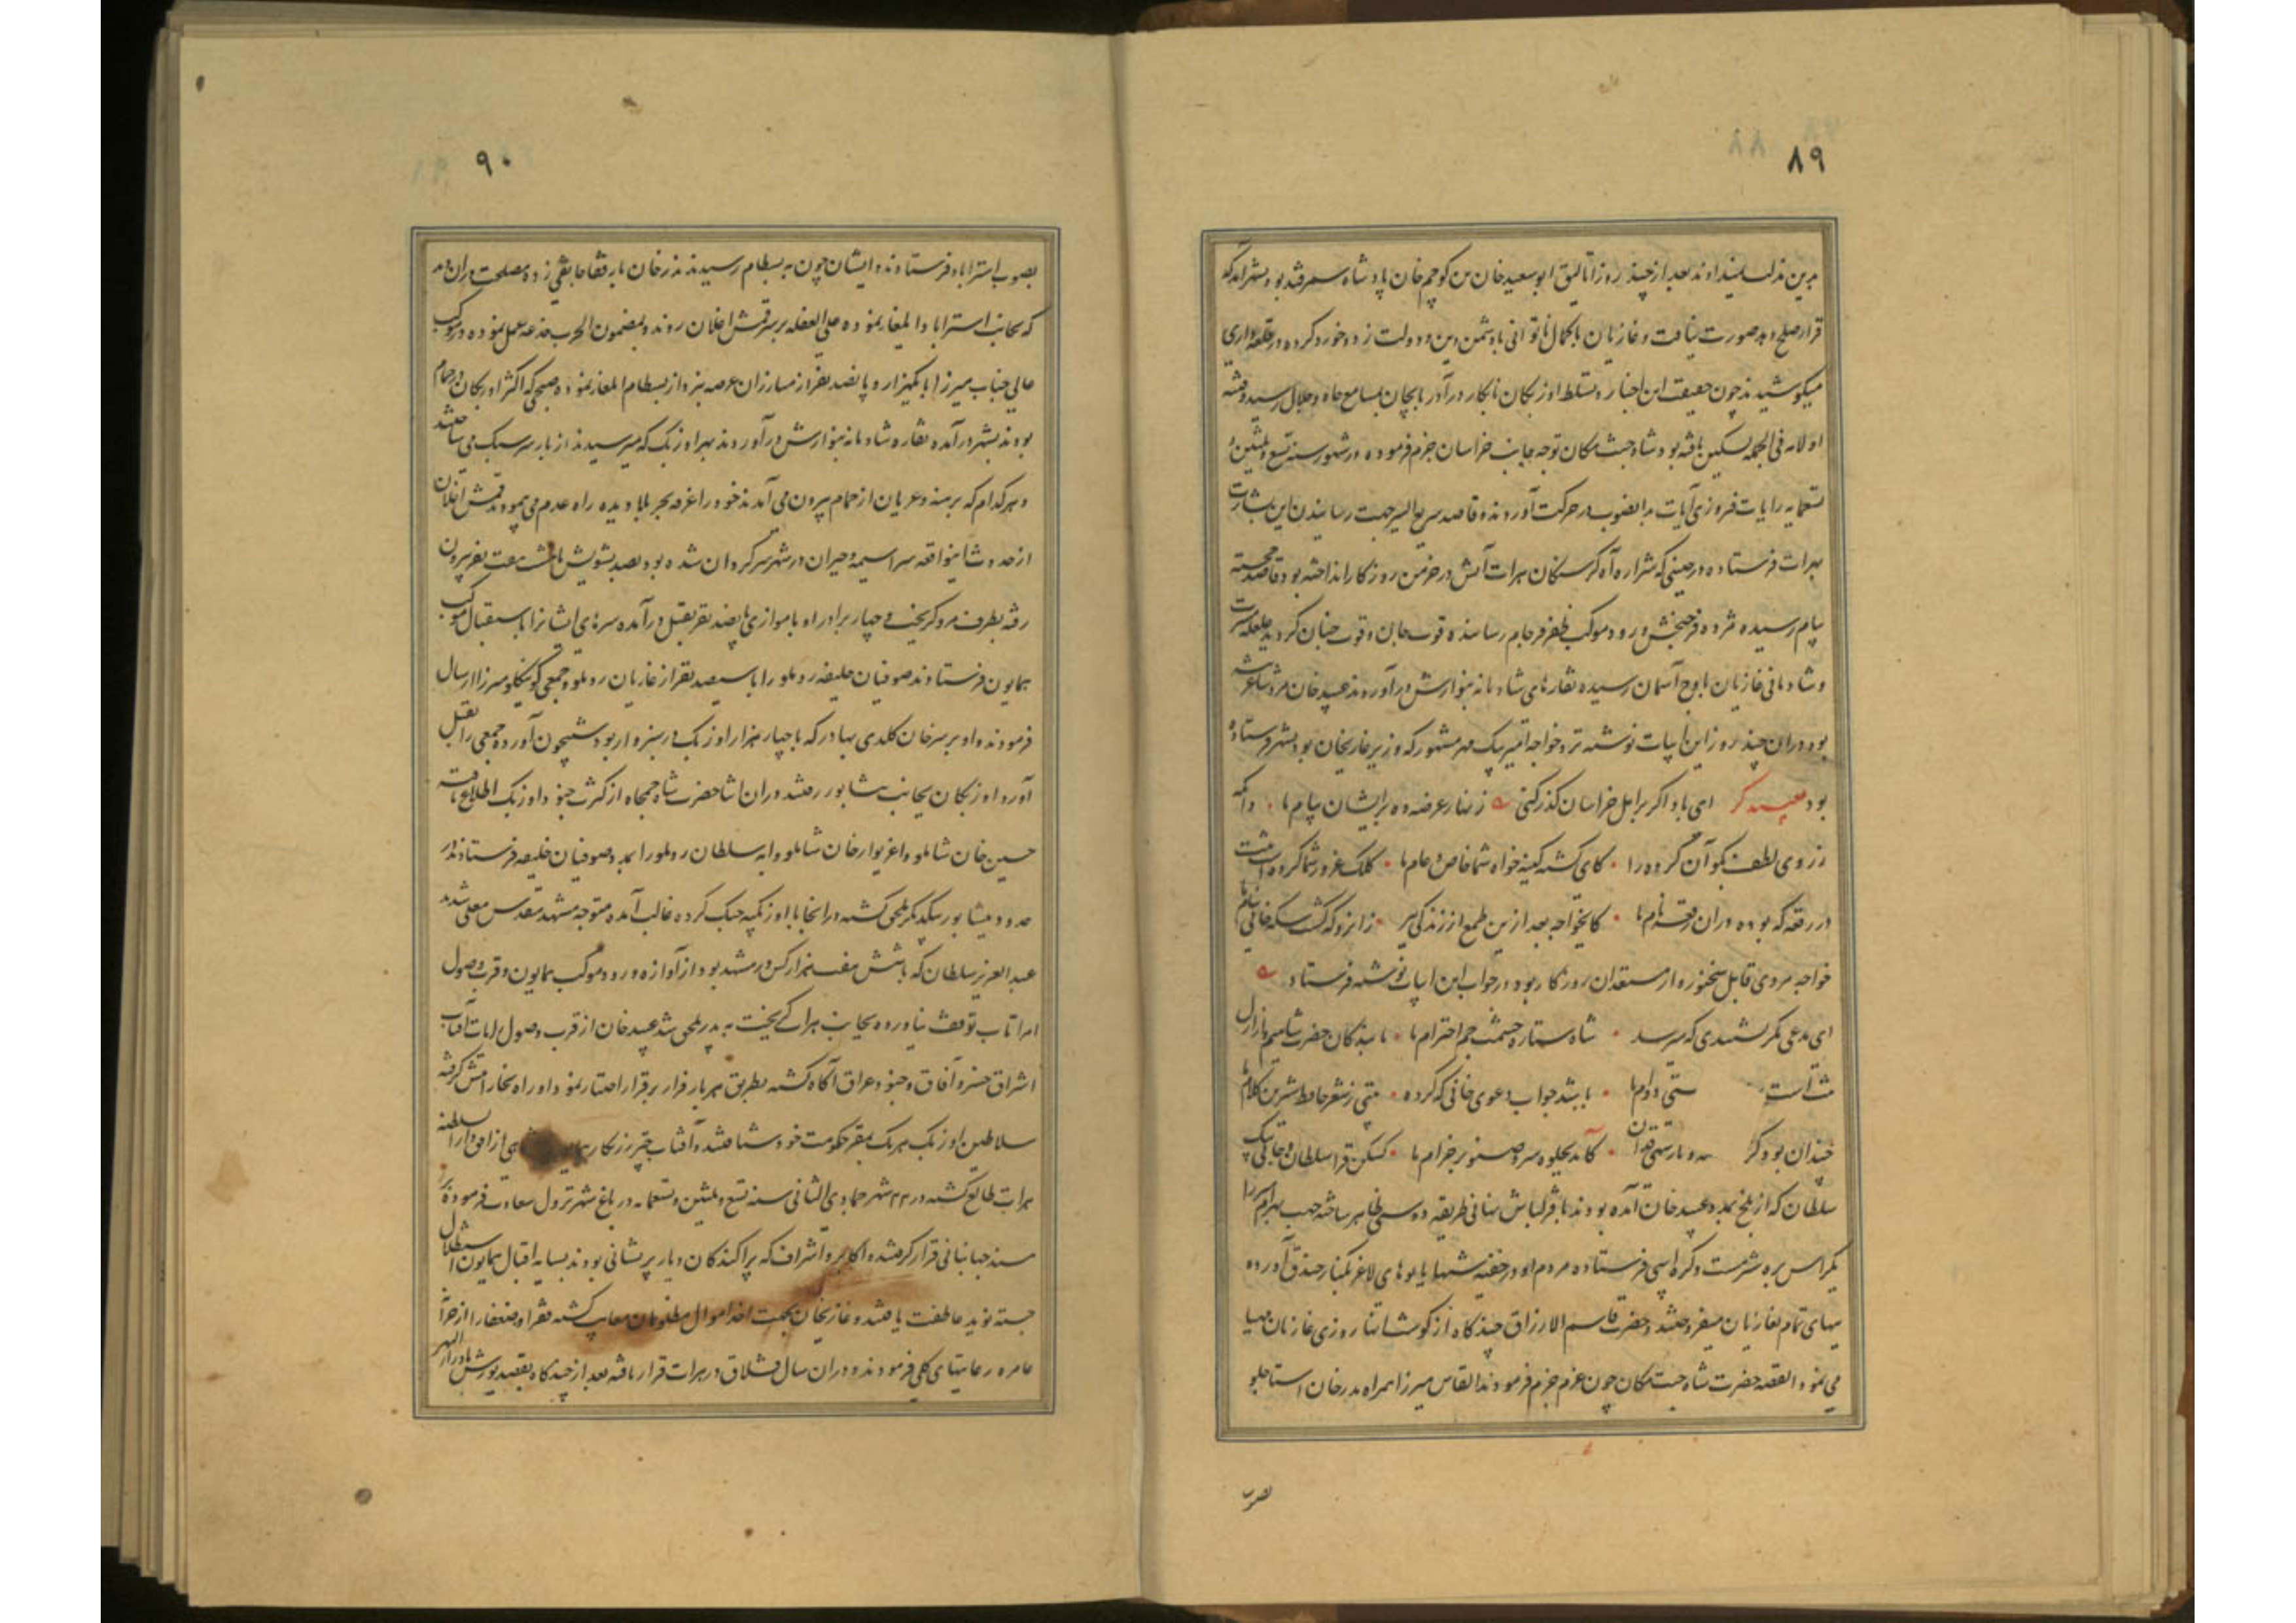 ۸۹
بعد از چند روز اتالیق ابو سعید خان بن کوچم خان پادشاه سمرقند بود
قرار صلح و غازیان با کمال ناتوانی با دشمن دین و دولت زد و خورد کرده در قلعه داری
میکوشیدند چون حقیقت این اخبار و تسلط اوزبکان نابکار در آذربایجان بمسامع جاه و جلال رسید و فتنه
اولامه فی الجمله تسکین یافته بود شاه جنت مکان توجه جانب خراسان جزم فرموده در شهور سنه تسع و ثلثین و
تسعمایه رایات فروزی آیات بدانصوب در حرکت آوردند و قاصد سریع السیر جهت رسانیدن این بشارت
بهرات فرستاده در حینی که شراره آه گرسنگان هرات آتش در خرمن روزگار انداخته بود قاصد خجسته
پیام رسیده مژده فرح بخش ورود موکب ظفر فرجام رسانیده قوت جان و قوت جنان گردید غلغله مسرت
و شادمانی غازیان باوج آسمان رسیده نقارهای شادمانه بنوازش درآوردند عبید خان مرد شاعر
بود دران چند روز این ابیات نوشته نزد خواجه امیر بیک مهر مشهور که وزیر غازیخان بود بشهر فرستاده
بود ای باد اگر بر اهل خراسان گذر کنی زنهار عرضه ده بر ایشان پیام ما
از روی لطف بگو آن گروه را کای گشته کینه خواه شما خاص و عام ما کلک غرور شما کرده است ثبت
در رقعه که بوده دران رقعه نام ما کایخواجه بعد ازین طمع از زندگی ببر زانرو که گشت سکه خانی بنام ما
خواجه مردی قابل سخنور و از مستعدان روزگار بود در جواب این ابیات نوشته فرستاد
ای مدعی مگر نشنیدی که میرسد شاه ستاره حشمت جم احترام ما ما بندگان حضرت شاهیم از ازل
ثبت است ستی دوام ما باشد جواب دعوی خانی که کرده بیتی ز شعر حافظ شیرین کلام ما
چندان بود سهی قدان کاید بجلوه سرو صنوبر خرام ما کسکن قرا سلطان
سلطان که از بلخ بمدد عبید خان آمده بودند با قزلباش پنهانی طریقه دوستی ظاهر ساخته جهت بهرام میرزا
یکراس بره شرمست و کره اسبی فرستاده مردم او در خفیه شبها یابوهای لاغر بکنار خندق آورده
ببهای تمام بغازیان میفروختند و حضرت قاسم الارزاق چندگاه از گوشت آنها روزی غازیان مهیا
می نمود القصه حضرت شاه جنت مکان چون عزم جزم فرمودند القاس میرزا همراه بدر خان استاجلو
بصوب
۹۰
بصوب استراباد فرستادند و ایشان چون به بسطام رسیدند بدر خان با رفقا جانقی زده مصلحت دران دید
که بجانب استراباد ایلغار نموده علی الغفله بر سر قمش اغلان روند و بمضمون الحرب خدعه عمل نموده در رکاب
عالی جناب میرزا با یکهزار و پانصد نفر از مبارزان عرصه نبرد از بسطام ایلغار نموده صبحی که اکثر اوزبکان در حمام
بودند بشهر درآمده نقاره شادمانه بنوازش درآوردند بهر اوزبک که میرسیدند از بار سر سبک می ساختند
و هر کدام که برهنه و عریان از حمام بیرون می آمدند خود را غرقه بحر بلا دیده راه عدم می پیمودند قمش اغلان
از حدوث اینواقعه سراسیمه و حیران در شهر سرگردان شده بود بصد تشویش با هشت هفت نفر بیرون
رفته بطرف مرو گریخت و چهار برادر او با موازی پانصد نفر بقتل درآمده سرهای ایشانرا باستقبال موکب
همایون فرستادند صوفیان خلیفه روملو را با سیصد نفر از غازیان روملو و جمعی کوسکلو میرزا ارسال
فرمودند و او بر سر خان کلدی بهادر که با چهار هزار اوزبک در سبزوار بود شبیخون آورده جمعی را بقتل
آورد اوزبکان بجانب نشابور رفتند دران اثنا حضرت شاه جمجاه از کثرت جنود اوزبک اطلاع یافته
حسین خان شاملو و اغزیوار خان شاملو و ابه سلطان روملو را بمدد صوفیان خلیفه فرستادند در
حدود نیشابور بیکدیگر ملحق گشته در انجا با اوزبکیه جنگ کرده غالب آمده متوجه مشهد مقدس معلی شدند
عبد العزیز سلطان که با شش هفت هزار کس در مشهد بود از آوازه ورود موکب همایون و قرب وصول
امرا تاب توقف نیاورده بجانب هرات گریخت به پدر ملحق شد عبید خان از قرب وصول رایات آفتاب
اشراق خسرو آفاق و جنود عراق آگاه گشته بطریق هر بار فرار بر قرار اختیار نمود و راه بخارا پیش گرفته
سلاطین اوزبک هر یک بمقر حکومت خود شتافتند و آفتاب چتر زرنگار همایون از افق دار السلطنه
هرات طالع گشته در ۲۲ شهر جمادی الثانی سنه تسع و ثلثین و تسعمایه در باغ شهر نزول سعادت فرموده بر
مسند جهانبانی قرار گرفتند و اکابر و اشراف که پراکندگان دیار پریشانی بودند بسایه اقبال همایون استظلال
جسته نوید عاطفت یافتند و غازیخان بجهت اخذ اموال مظلومان معاتب گشته فقرا و ضعفا را از خزانه
عامره رعایتهای کلی فرمودند و دران سال قشلاق در هرات قرار یافته بعد از چندگاه بقصد یورش ماوراء النهر